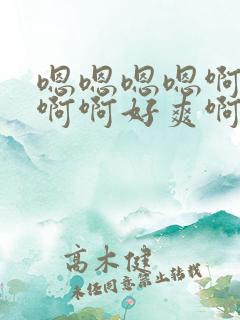 嗯嗯嗯嗯啊
啊啊好爽啊
高木健
未经同意禁止转载